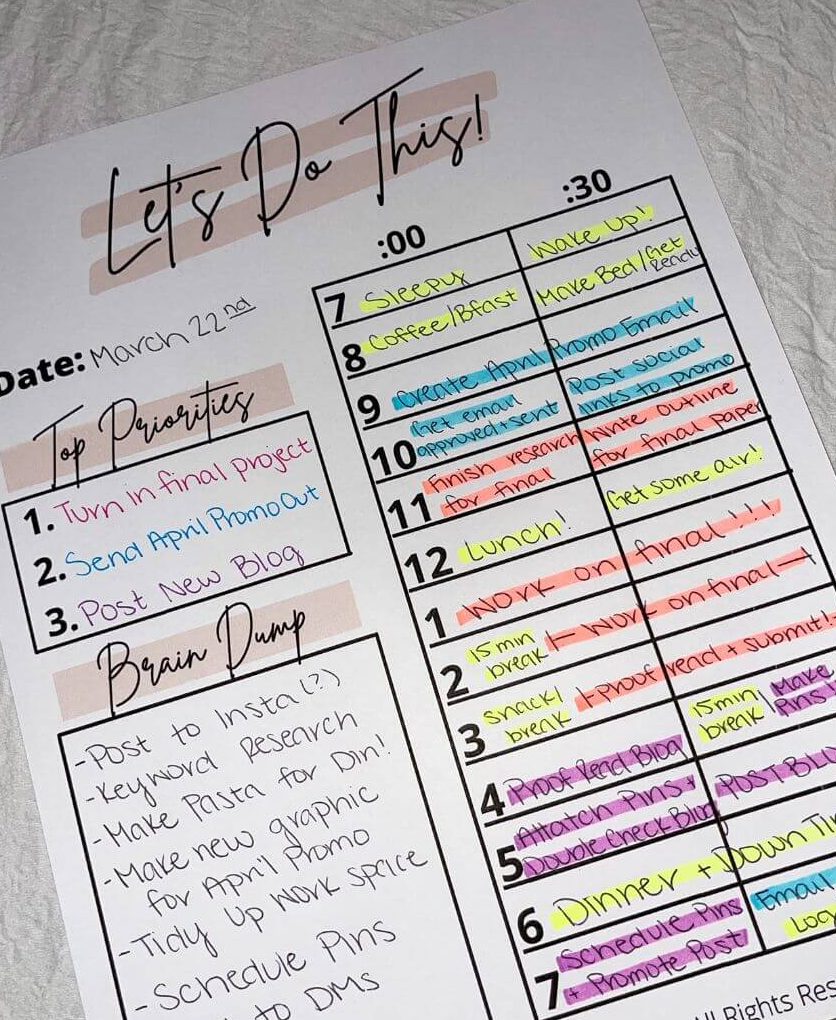 Let's Do This!
:00 :30
Date: March 22nd
7 Sleepy Wake Up!
8 Coffee/Bfast Make Bed/Get Ready
9 Create April Promo Email
10 Get email approved + sent Post social links to promo
11 Finish research for final Write outline for final paper
12 Lunch! Get some air!
1 Work on final!!!
2 15 min break Work on final
3 snack/ break Proof read + submit!
4 Proof Read Blog 15 min break/ Make Pins
5 Attatch Pins + Double Check Blog POST
6 Dinner + Down
7 Schedule Pins + Promote Post Email
Top Priorities
1. Turn in final project
2. Send April Promo Out
3. Post New Blog
Brain Dump
- Post to Insta(?)
- Keyword Research
- Make Pasta for Din!
- Make new graphic
for April Promo
- Tidy Up Work Space
- Schedule Pins
to DMs
Rights